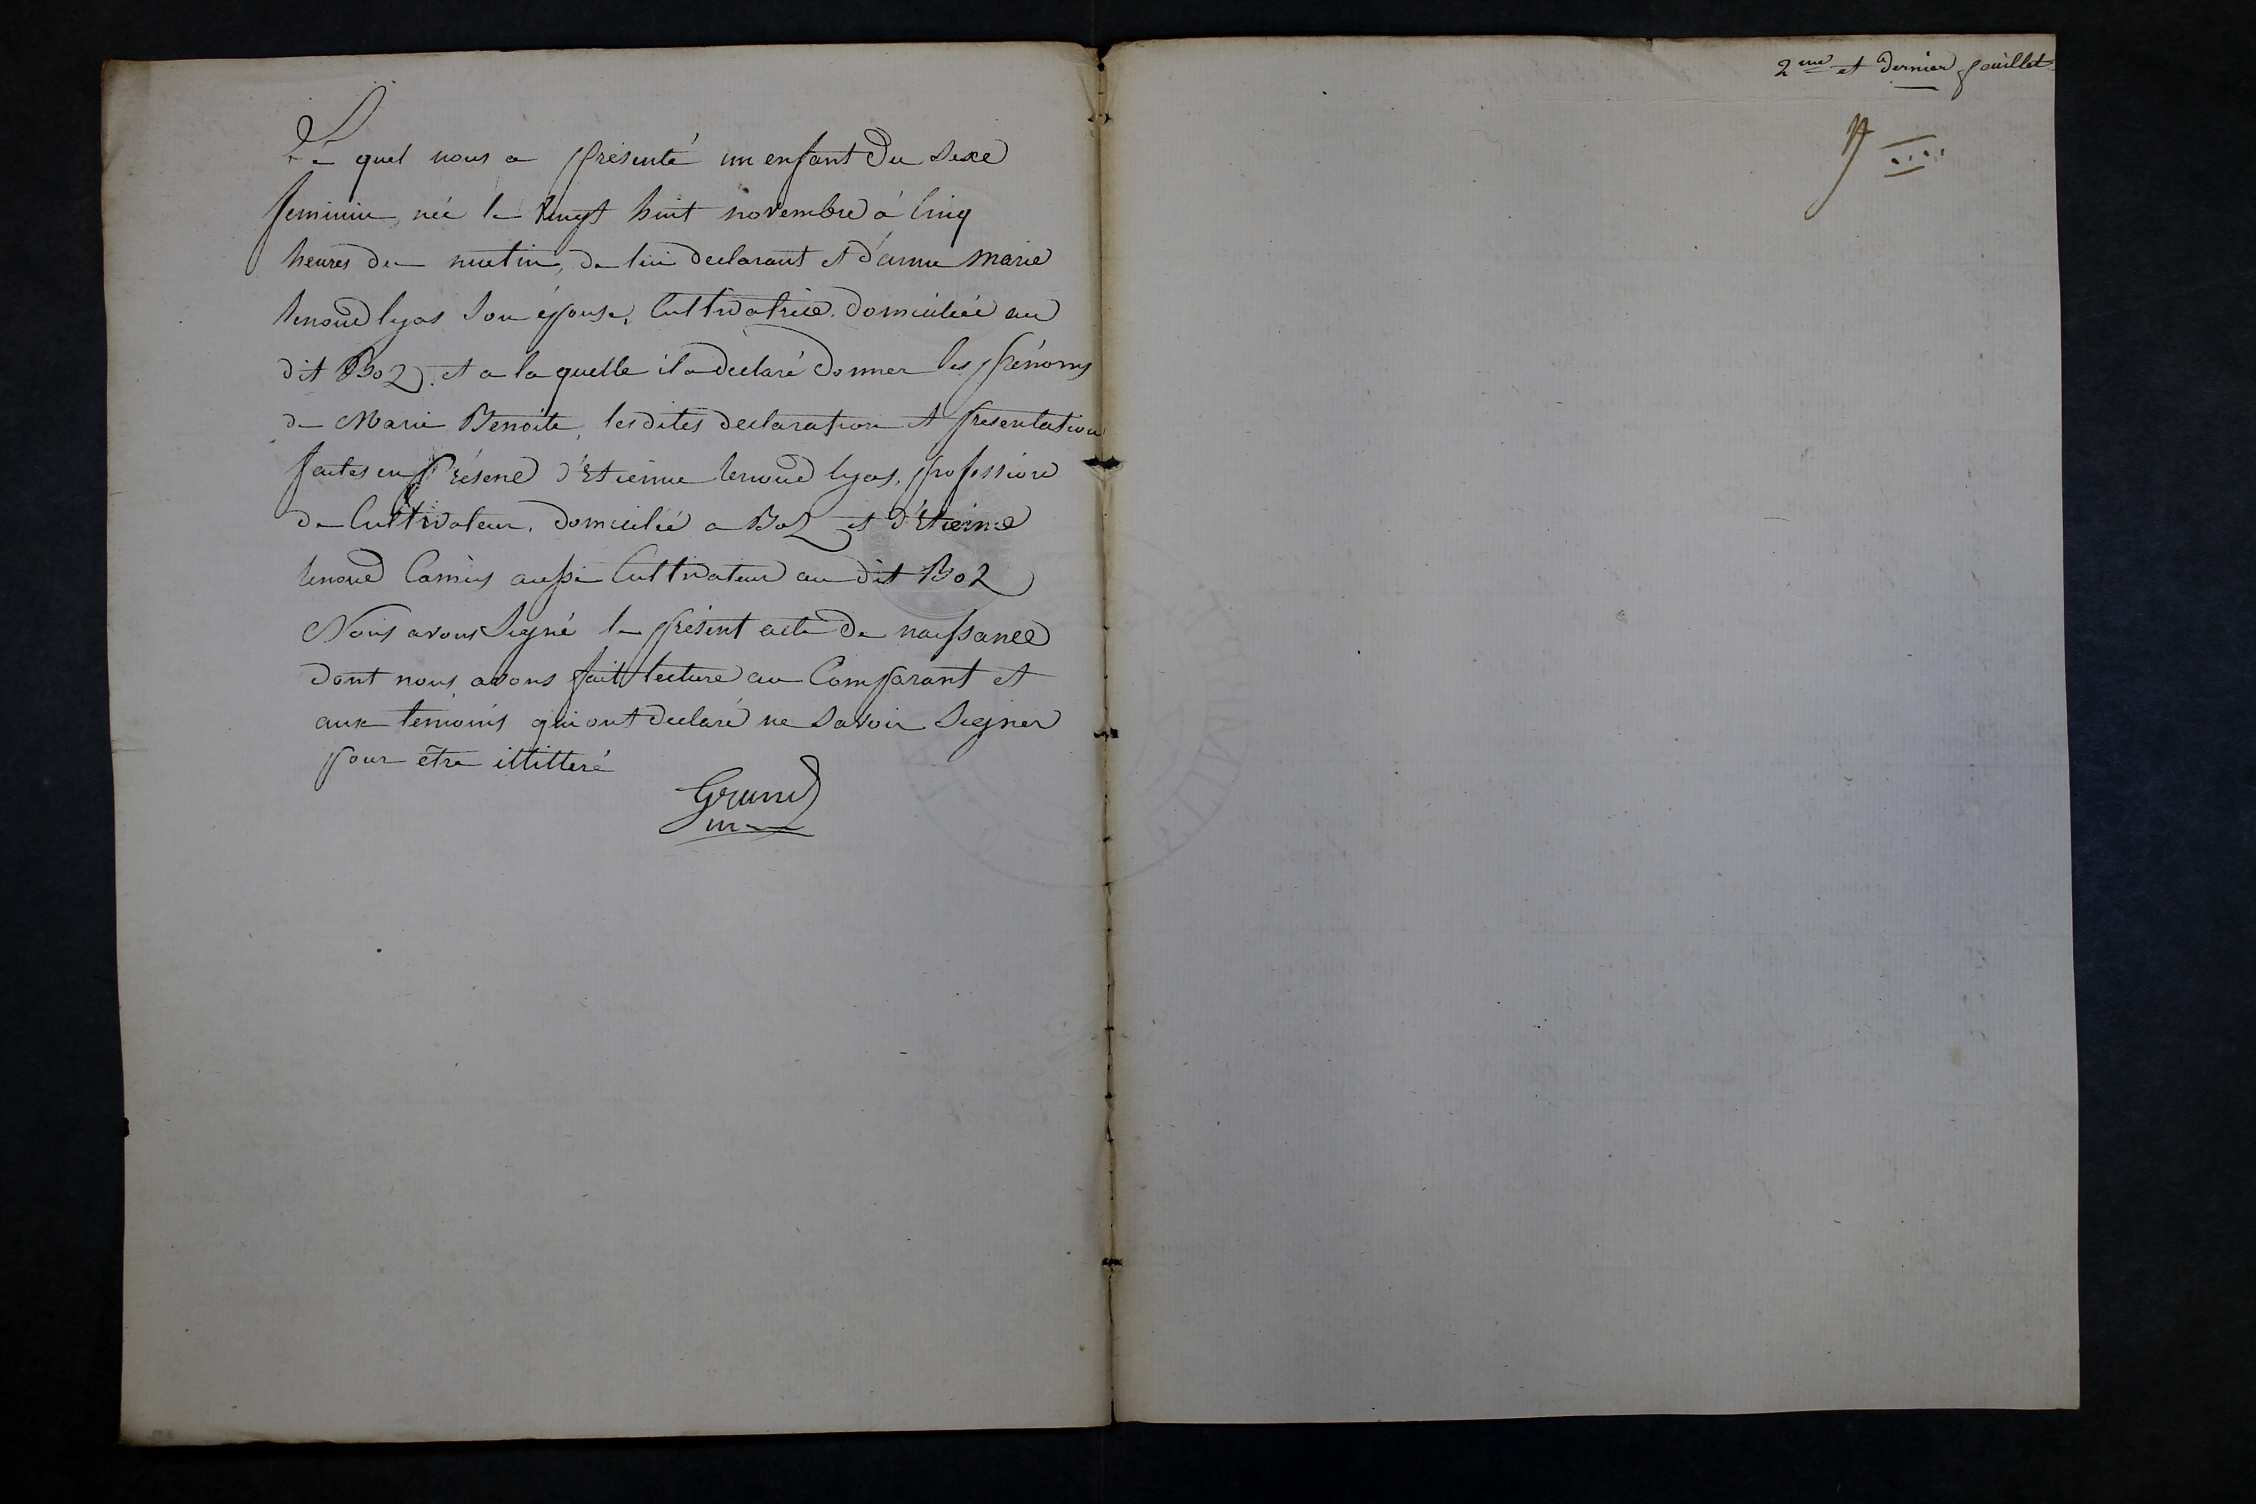 Le quel nous a présenté un enfant du sexe
feminin, née le vingt huit novembre à cinq
heures du matin, de lui declarant et d'anne marie
renoud lyas son épouse, Cultivatrice domiciliée au
dit Boz, et a la quelle il a déclaré donner les prénoms
de Marie Benoite, les dites declaration et presentation
faites en présence d'Etienne renoud lyas, profession
de Cultivateur, domicilié a Boz et d'Etienne
renoud Camus aussi Cultivateur au dit Boz
Nous avons signé le présent acte de naissance
dont nous avons fait lecture au Comparant et
aux temoins qui ont declaré ne savoir signer
pour être illitteré
2eme et dernier feuillet